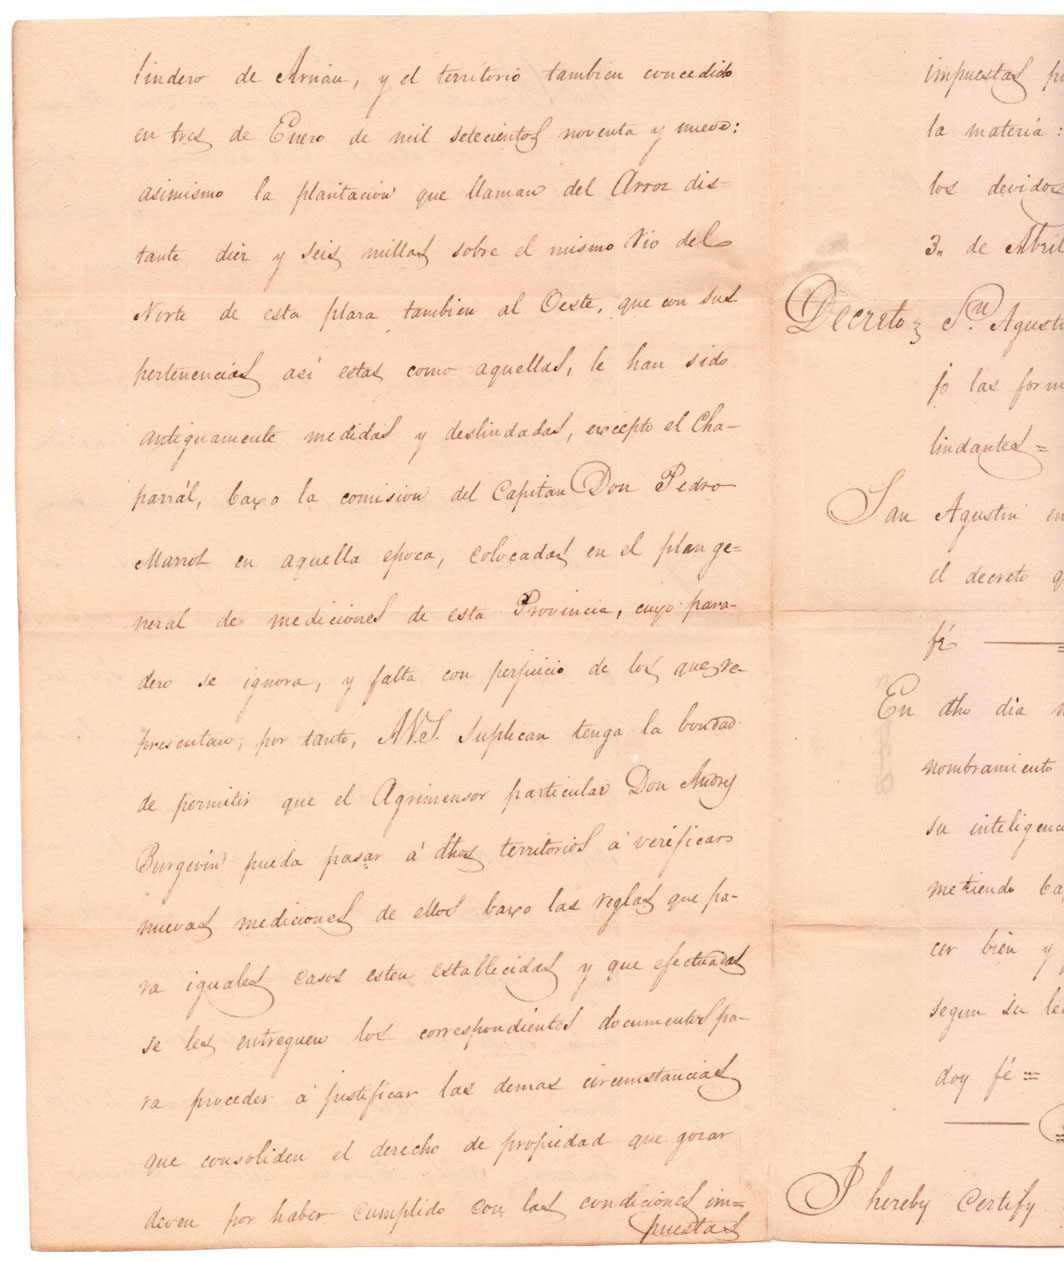 lindero de Arnau, y el territorio tambien concedido
en tres de Enero de mil setecientos noventa y nueve:
asimismo la plantacion que llaman del Arroz dis=
tante diez y seis millas sobre el mismo Rio del
Norte de esta plaza tambien al Oeste, que con sus
pertenencias así estas como aquellas, le han sido
antiguamente medidas y deslindadas, excepto el Cha-
parrál, baxo la comision del Capitan Don Pedro
Marrot en aquella epoca, colocadas en el plan ge=
neral de mediciones de esta Provincia, cuyo para-
dero se ignora, y falta con perjuicio de los que re-
presentan, por tanto, A.V.S. Suplican tenga la bondad
de permitir que el Agrimensor particular Don Andres
Burgevin pueda pasar á dhos territorios á verificar
nuevas mediciones de ellos baxo las reglas que pa-
ra iguales casos esten establecidas y que efectuadas
se les entreguen los correspondientes documentos pa-
ra proceder á justificar las demas circunstancias
que consoliden el derecho de propiedad que gozar
deven por haber cumplido con las condiciones im=
puestas
impuestas p
la materia:
los devidos
3,, de Abril
Decreto San Agusti
jo las form
lindantes=
San Agustin en
el decreto q
fé
En dho dia
nombramiento
su inteligenc
metiendo ba
cer bien y
segun su le
doy fé=
I hereby certify